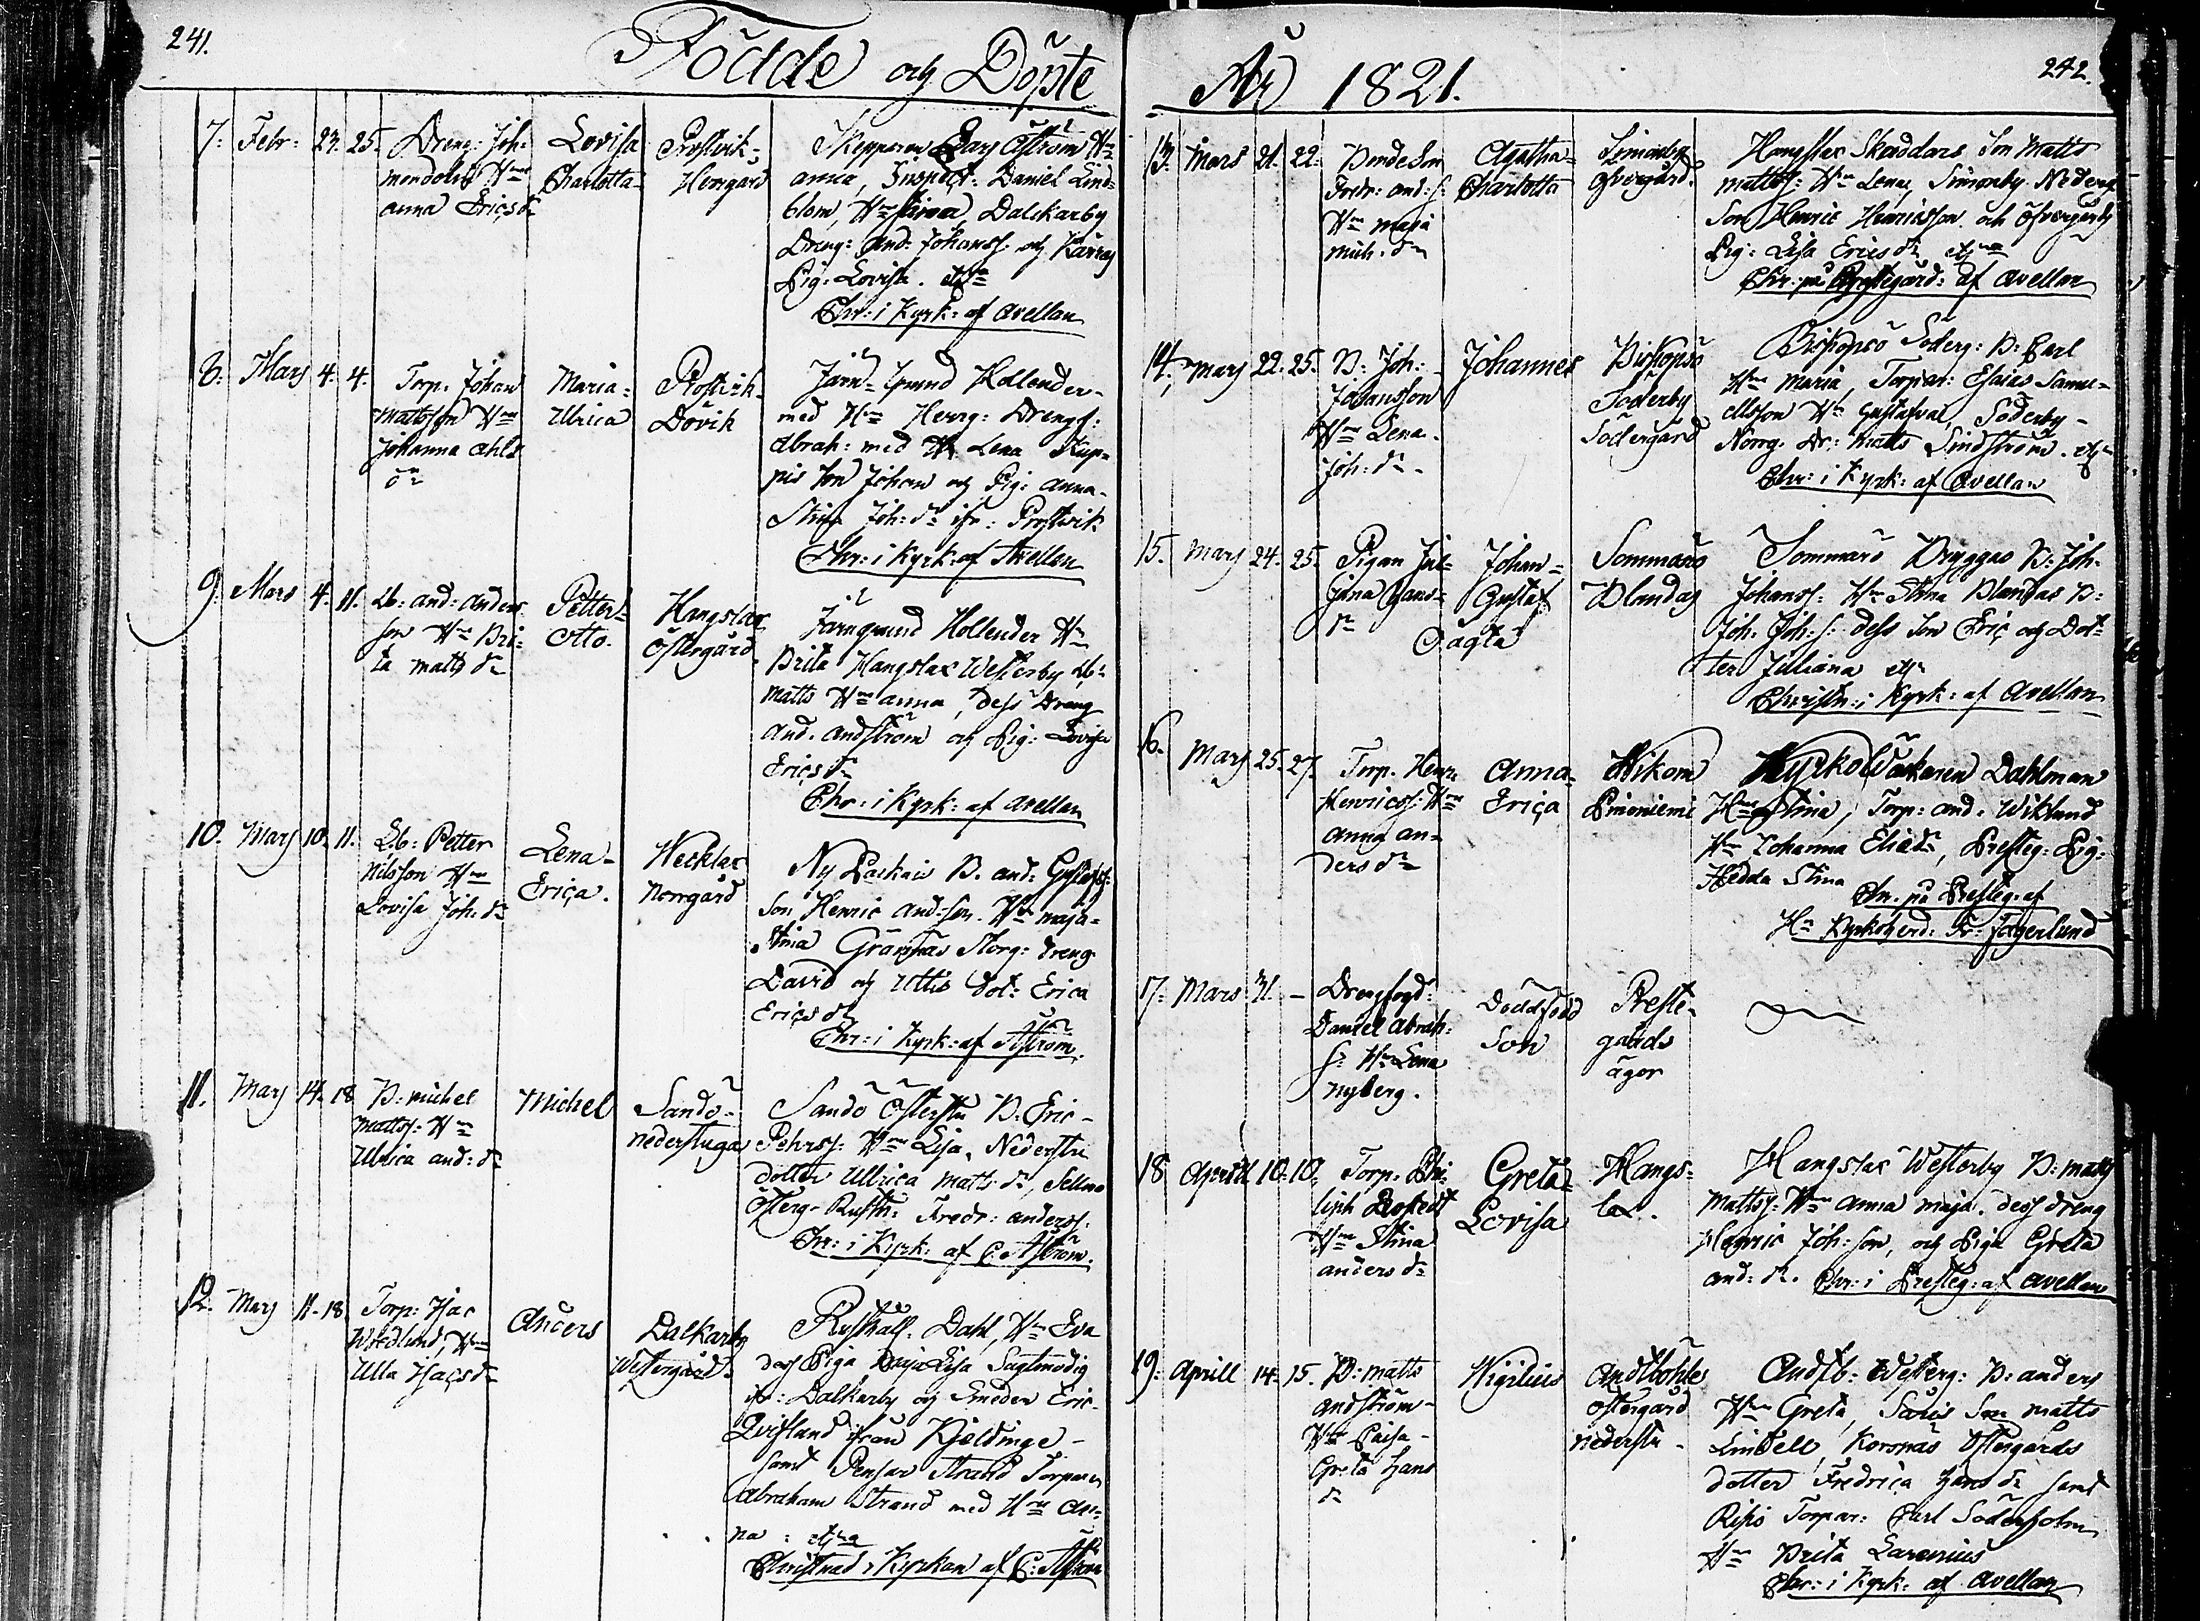 241.
Födde och Döpte
7. Febr: 23. 25. Dreng: Joh:
Lovisa
Charlotta
Anna Ericsdr
Daniel Lind=
blom, Hru Dalckarby
Dreng: And: Johanss: och
Pig: Lovisa.
Chr: i Kyrk: af Avellan
8. Mars 4. 4. Torp. Johan
Mattsson Hru
Johanna
Maria=
Ulrica
Dövik
med Hru Herrg: Drengs:
Abrah: med Hu Lena Kup=
pis Son Johan och Pig: Anna-
Stina Joh: dr ifr: Prostvik
Chr: i Kyrk: af Avellan
9. Mars 4. 11. Lb: And: Anders
son Hru Bri=
ta Matts dr
Petter=
Otto.
Hangslax
Östergård
Järngrund Hollender Hru
Brita Hangslax Westerby Lb:
Matts Hru Anna, dess Dreng
And. Andström och Pig: Lovisa
Erics dr
Chr: i Kyrk: af Avellan
10. Mars 10. 11. Lb: Petter
Nilsson Hru
Lovisa Joh: dr
Lena=
Erica.
Norrgård
Son Henric And:son. Hru Maja=
Stina Gränsnäs Storg: Dreng
David och Uttis Dot: Erica
Erics dr
Chr: i Kyrk: af Åström.
11. Mars 14. 18. B: Michel
Mattss: Hru
Ulrica And: dr
Michel
Sandö=
Nederstuga
Sandö Österstu B. Eric
Pehrss: Hru Lisa, Nederstu
dotter Ullrica Matts dr, Sellmo
Österg. Rusth: Fredr: Anderss.
Chr: i Kyrk: af C. Åström.
12. Mars 11. 18. Torp: Isac
Wedlund, Hru
Ulla Isacs dr
Anders
Dalkarby
Westergård.
Rusthåll. Dahl, Hru Eva
dess Piga Caisa Lisa Sagtmodig
ifr: Dalkarby och Smeden Eric
Qvistland ifrån Kjeldinge
samt Pensar Strand Torparen
Abraham Strand med Hru An=
na:
Christnad i Kyrkan af C: Åström
År 1821.
242.
13. Mars 21. 22. Bonde Son
Fredr: And: s:
Hru Maja
Mich. dr
Agatha=
Charlotta
Simonby
Öfvergård.
Hangslax Skräddars Son Matts
Mattss: Hru Lena, Simonby Nederg
Son Henric Henricsson och Öfvergårds
Pig: Lisa Erics dr
Chr: på Prestegård: af Avellan
14. Mars 22. 25. B: Joh:
Johansson
Hru Lena
Joh: dr
Johannes
Biskopsö
Söderby
Södergård
Biskopsö Söderg: B: Carl
Hru Maria, Torpar: Esaias Samu=
elsson Hru Gustafva, Söderby
Norrg. Dr: Matts Lindström.
Chr: i Kyrk: af Avellan
15. Mars 24. 25. Pigan Jul=
jana Hans=
dr
Johan=
Gustaf
Oägta
Sommarö
Blandas
Sommarö Bryggas B: Joh.
Johanss: Hru Stina Blandas B:
Joh. Joh: s: dess Son Eric och Dot=
ter Juliana
Christn: i Kyrk: af Avellan
16. Mars 25. 27. Torp. Henr:
Henricss: Hru
Anna An=
ders dr
Anna=
Erica
Wikom
Kyrkowäktaren Dahlman
Hru Stina, Torp: And: Wiklund
Hru Johanna Eliædr, Presteg: Pig:
Hedda Stina
Chr. på Presteg. af
Hr Kyrkoherd: Fr: Fagerlund
17. Mars 31. - Drengfogd:
Daniel Abrah:
s: Hru Lena
Nyberg.
Dödfödd
Son
Preste=
gårds
ägor
18 Aprill 10. 10. Torp. Phi=
liph
Hru Stina
Anders dr
Greta=
Lovisa
Hangs=
lax.
Hangslax Westerby B: Matts
Mattss: Hru Anna Maja. dess dreng
Henric Joh: son, och Piga Greta
And: dr. Chr: i Presteg: af Avellan
19. Aprill 14. 15. B: Matts
Andström
Hru Caisa
Greta Hans
dr
Wigilius
Andtböhle
Östergård
Nederstu
Andtb: Westerg: B: Anders
Hru Greta, Säris Son Matts
Lindell, Korsnäs Östergårds
dotter Fredrica Hans dr samt
Risis Torpar: Carl Söderholm
Hru Brita Larenius
Chr: i Kyrk: af Avellan